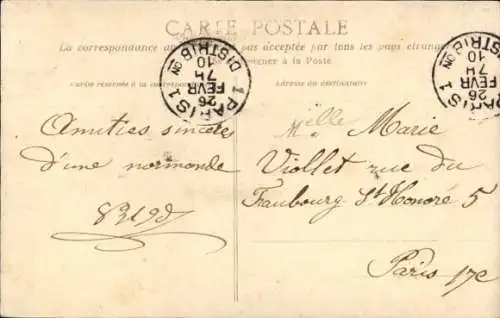 CARTE POSTALE
La correspondance au pas acceptée par tous les pays étrang
gner à la Poste
Partie réservée à la correspon Adresse du destinataire
PARIS 1
DISTRIB ON
26
FEVR
7H
10
PARIS 1
DISTRIB ON
26
FEVR
7H
10
Amitiés sincères
d'une normande
Melle Marie
Viollet rue du
Faubourg St Honoré 5
Paris 17e